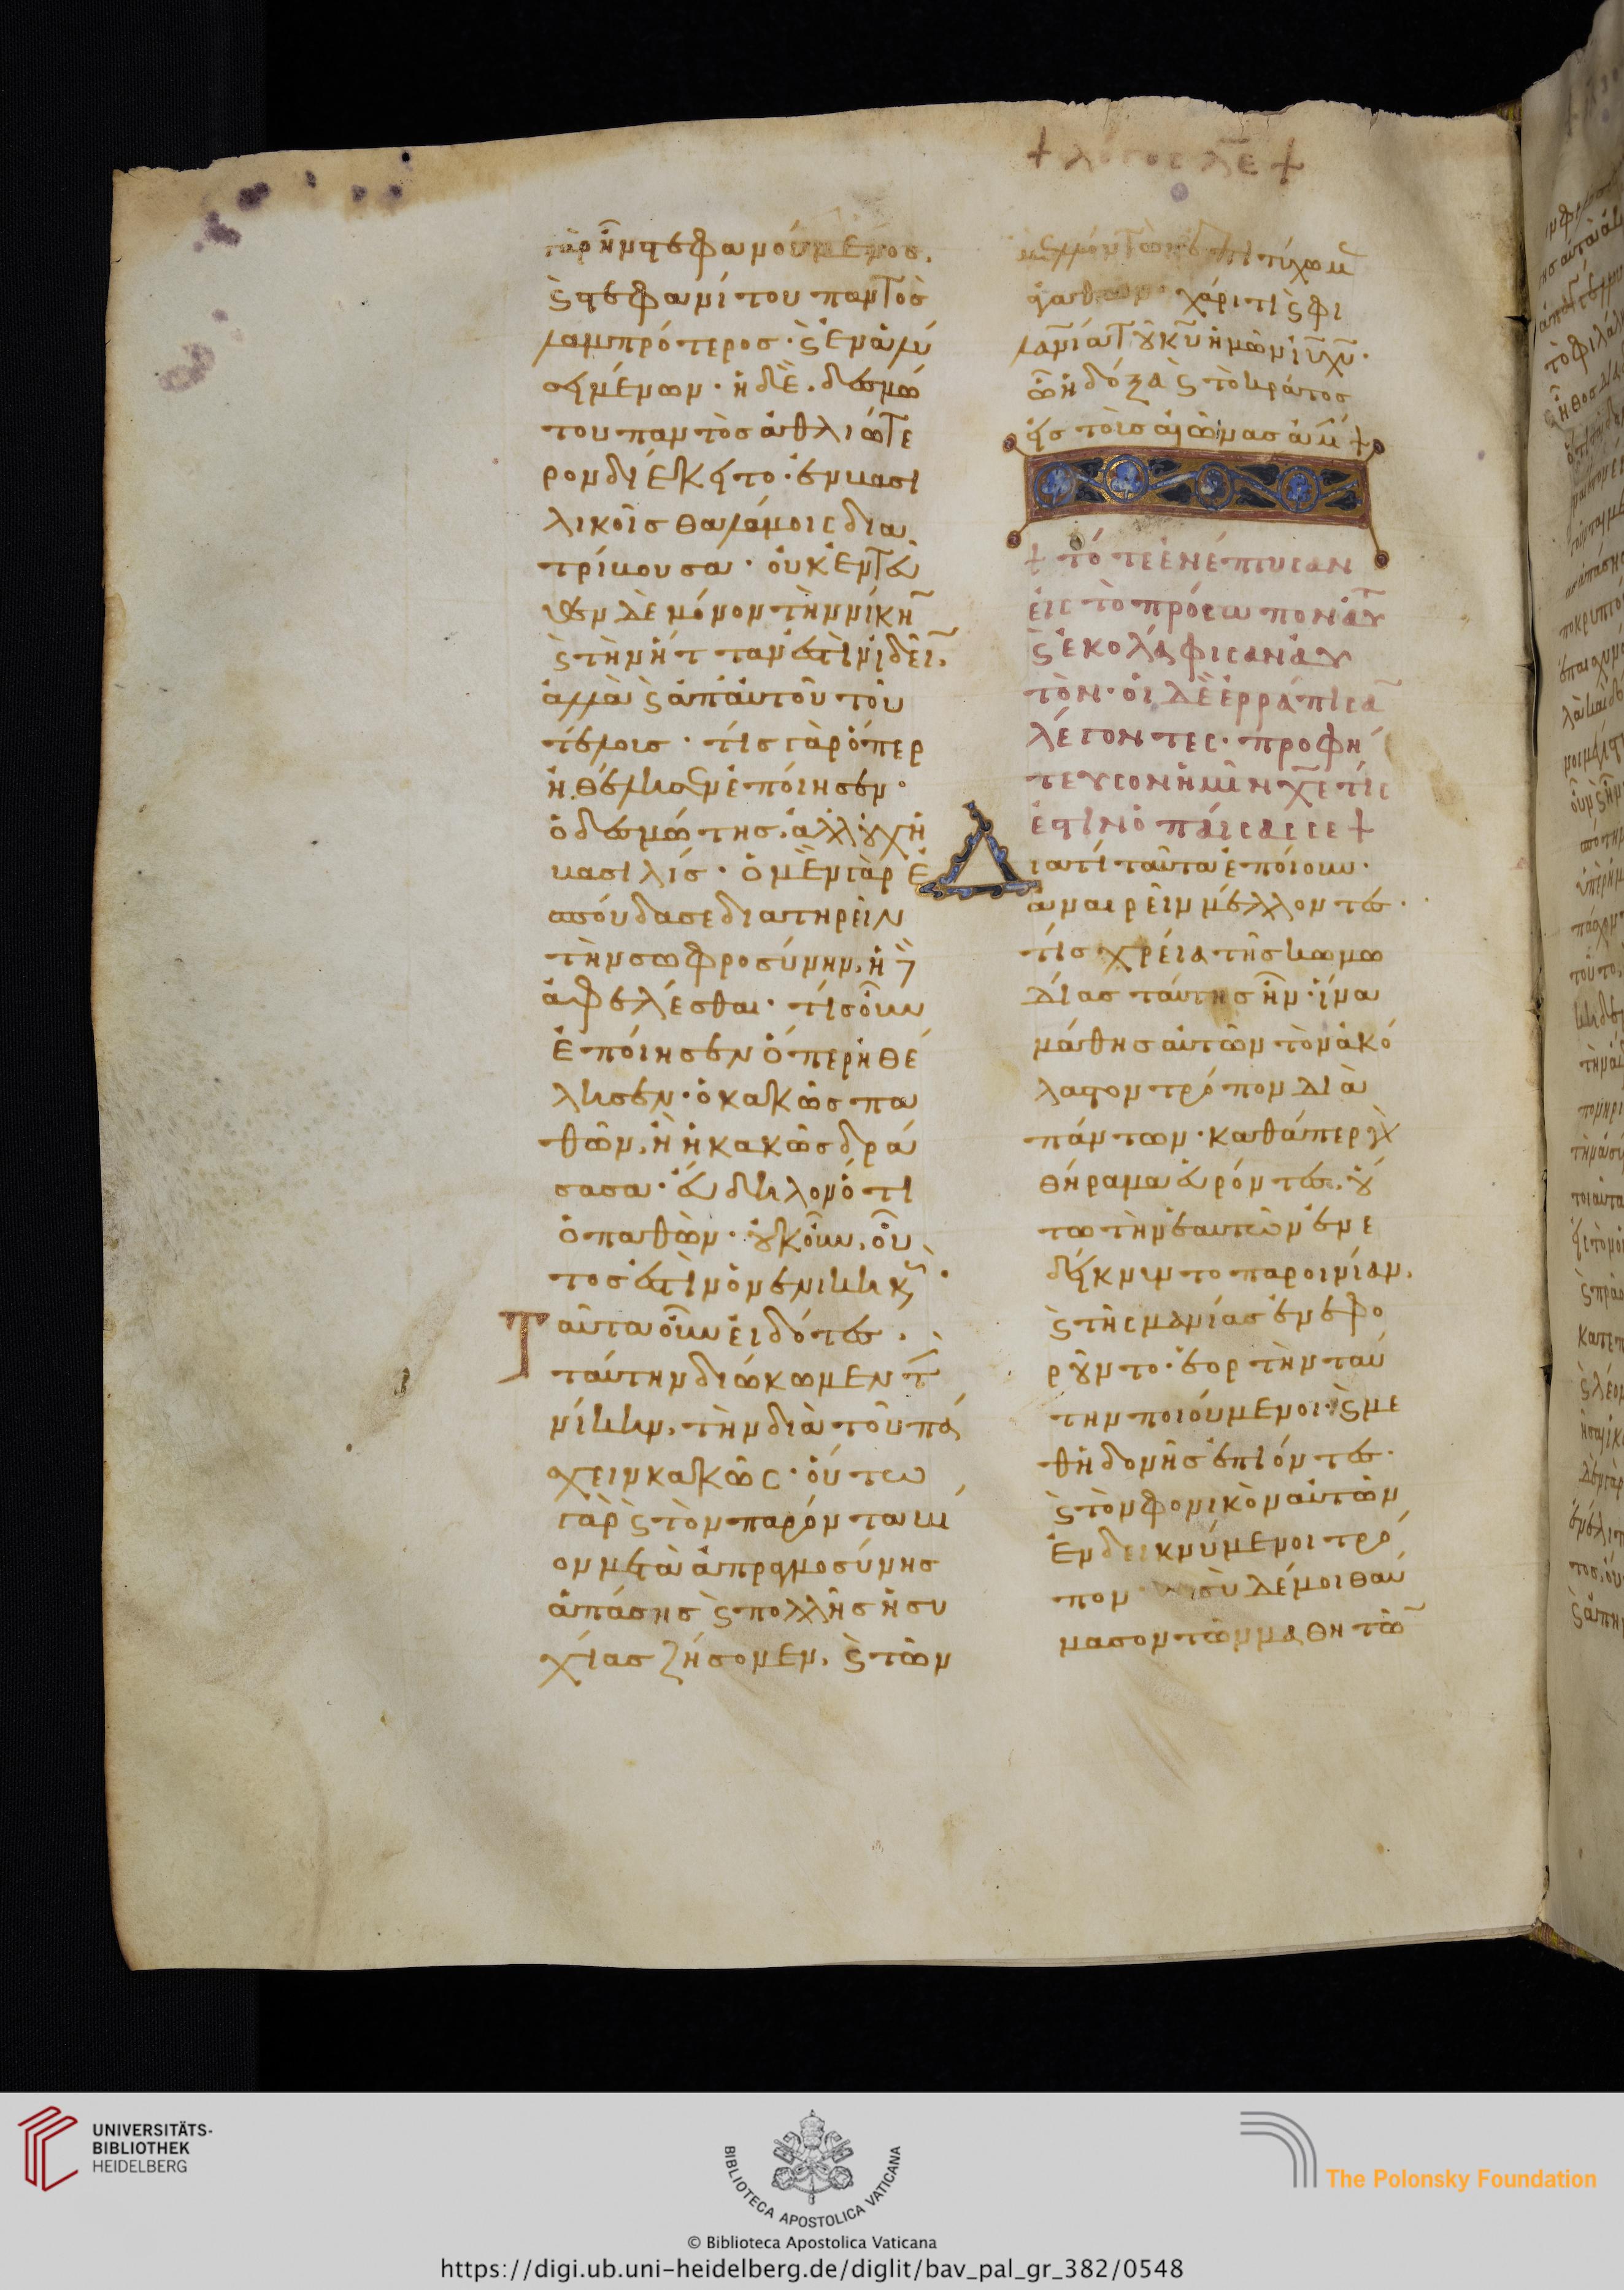 γὰρ ἦν στεφανούμενος,
καὶ στεφανίτου παντὸς
λαμπρότερος· καὶ ἐν ἁλύ
σει μένων· ἡ δὲ, δεσμώ
του παντὸς ἀθλιώτε
ρον διέκειτο· ἐν βασι
λικοῖς θαλάμοις δια
τρίβουσα· οὐκ ἐντεῦ
θεν δὲ μόνον τὴν νίκην
καὶ τὴν ἧτταν ἐστὶν ἰδεῖν,
ἀλλὰ καὶ ἀπ αὐτοῦ τοῦ
τέλους· τίς γὰρ ὅπερ
ἠθέλησεν ἐποίησεν·
ὁ δεσμώτης, ἀλλ οὐχ ἡ
βασιλίς· ὁ μὲν γὰρ ἐ
σπούδασε διατηρεῖν
τὴν σωφροσύνην, ἡ δὲ
ἀφελέσθαι· τίς οὖν
ἐποίησεν ὅπερ ἠθέ
λησεν· ὁ κακῶς πα
θὼν, ἢ ἡ κακῶς δρά
σασα· εὔδηλον ὅτι
ὁ παθών· οὐκοῦν, οὗ
τός ἐστιν ὁ νενικηκώς·
Ταῦτα οὖν εἰδότες,
ταύτην διώκωμεν τὴν
νίκην, τὴν διὰ τοῦ πά
σχειν κακῶς· οὕτω
γὰρ καὶ τὸν παρόντα βί
ον μετὰ ἀπραγμοσύνης
ἁπάσης καὶ πολλῆς ἡσυ
χίας ζήσομεν, καὶ τῶν
+ λόγος λε +
μελλόντων ἐπιτύχωμεν
ἀγαθῶν χάριτι καὶ φι
λανθρωπίᾳ τοῦ κυ ἡμῶν ιυ χυ·
ᾧ ἡ δόξα καὶ τὸ κράτος
εἰς τοὺς αἰῶνας ἀμήν +
+ τότε ἐνέπτυσαν
εἰς τὸ πρόσωπον αὐτοῦ
καὶ ἐκολάφισαν αὐ
τόν· οἱ δὲ ἐρράπισαν
λέγοντες· προφή
τευσον ἡμῖν χε τίς
ἐστιν ὁ παίσας σε +
Διατί ταῦτα ἐποίουν·
ἀναιρεῖν μέλλοντες·
τίς χρεία τῆς κωμω
δίας ταύτης ἦν· ἵνα
μάθῃς αὐτῶν τὸν ἀκό
λαστον τρόπον διὰ
πάντων· καθάπερ γὰρ
θήραμα εὑρόντες, οὕ
τω τὴν ἑαυτῶν ἐνε
δείκνυντο παροινίαν,
καὶ τῆς μανίας ἐνεφο
ροῦντο· ἑορτὴν ταύ
την ποιούμενοι, καὶ με
θ ἡδονῆς ἐπιόντες·
καὶ τὸν φονικὸν αὐτῶν
ἐνδεικνύμενοι τρό
πον σὺ δέ μοι θαύ
μασον τῶν μαθητῶν
UNIVERSITÄTS-
BIBLIOTHEK
HEIDELBERG
BIBLIOTECA APOSTOLICA VATICANA
The Polonsky Foundation
© Biblioteca Apostolica Vaticana
https://digi.ub.uni-heidelberg.de/diglit/bav_pal_gr_382/0548